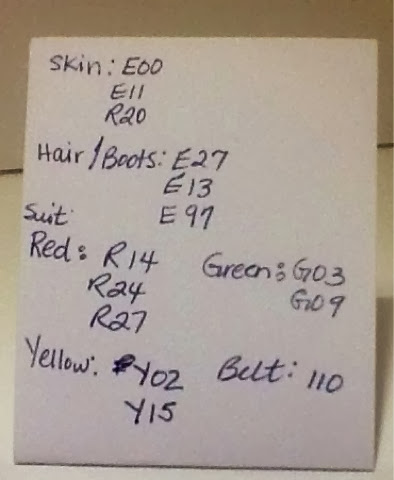 Skin: E00
E11
R20
Hair/Boots: E27
E13
Suit: E97
Red: R14 Green: G03
R24 G09
R27
Yellow: Y02 Belt: 110
Y15